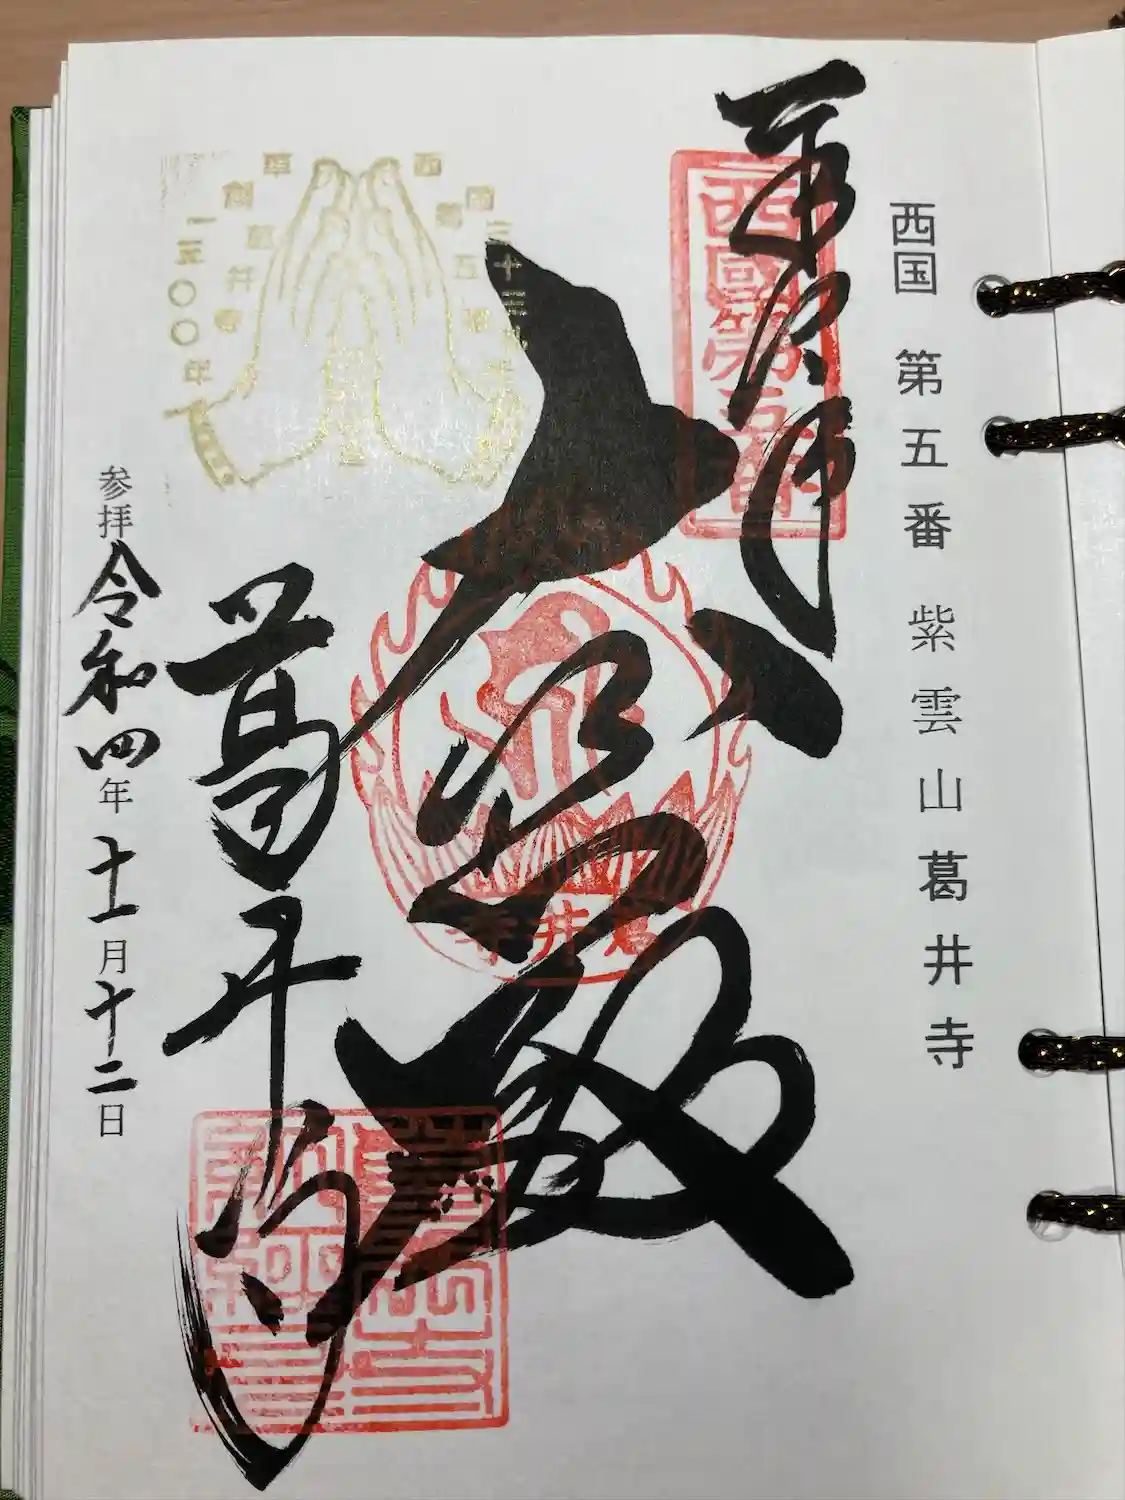 西国 第五番 紫雲山葛井寺
奉拝
西國第五番
大悲殿
葛井寺
葛井寺
西國三十三所第五番
葛井寺
草創一三〇〇年
参拝 令和四年 十一月 十二日